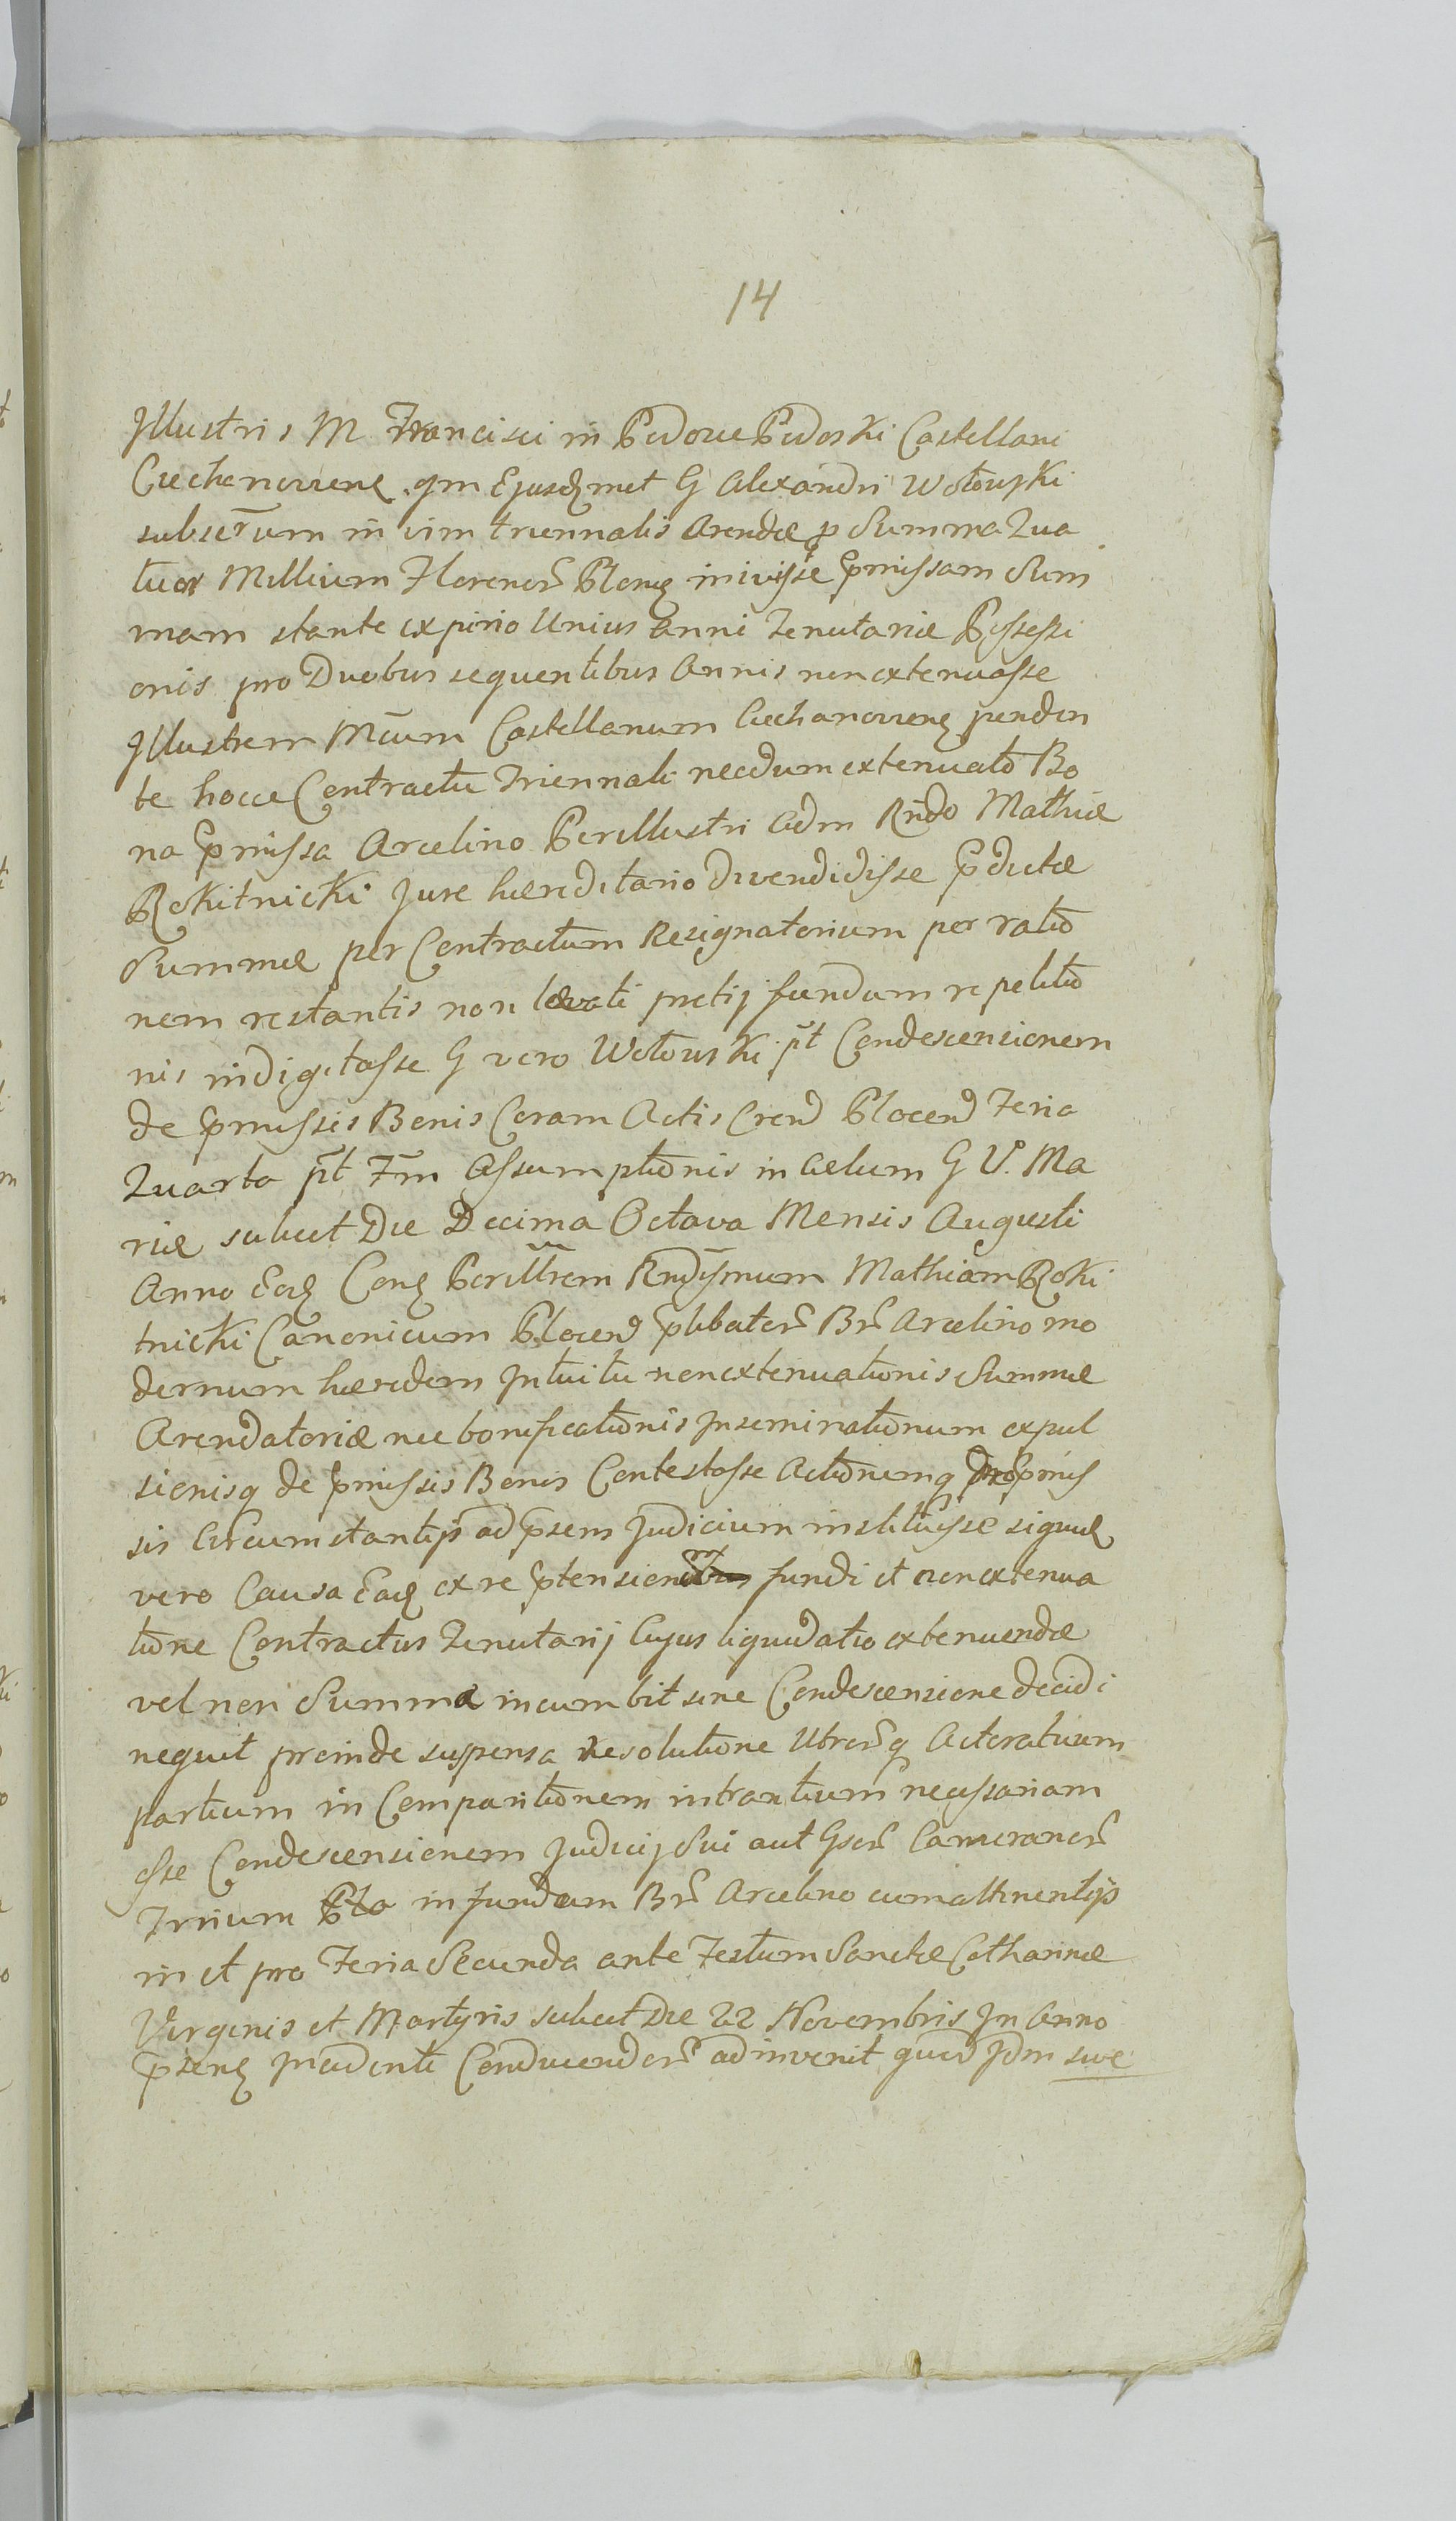 14
Illustris M Francisci in Podoue Podoski Castellani
Ciechanovienẽ qm Ejusdmet G Alexandri Wołowski
subserum in vim triennalis Arendæ p Summa Qua
tuor Millium Florenor Plong inivisse pmissam Sum
mam stante expirio Unius anni Tenutariæ Possessi
onis pro Duobus sequentibus Annis non extenuasse
Illustrem Mcum Castellanum Ciechanoviens penden
te hocce Contractu Triennali necdum extenuato Bo
na pmissa Arcelino Perillustri Adm Rndo Mathiæ
Rokitnicki Jure hæreditario Divendidisse pdictæ
Summæ per Contractum Resignatorium per ratio
nem restantis non levati pretij fundum repetitio
nis indigitasse G vero Wołowski pt Condescensionem
de pmissis Bonis Coram Actis Cren Plocen Feria
Quarta pt Fm Assumptionis in Cælum G V. Ma
riæ scilicet Die Decima Octava Mensis Augusti
Anno Eod Cons Perillrem Rndissmum Mathiam Roki
tnicki Canonicum Plocen plibator Br Arcelino mo
dernum hæredem Intuitu nonextenuationis Summæ
Arendatoriæ nec bonificationis Inseminationum expul
sionisq de pmissis Bonis Contestasse Actionemq pro pmis
sis Circumstantijs ad psens Judicium instituisse siquid
vero Causa Ead ex re ptensionem fundi et nonextenua
tione Contractus Tenutarij Cujus liquidatio extenuendæ
vel non Summa incumbit sine Condescensione decidi
nequit proinde suspensa Resolutione Utrorq Actoratuum
partium in Comparitionem intrantium necessariam
esse Condescensionem Judicij Sui aut Gsor Cameraner
Trium in fundum Br Arcelino cum attinentijs
in et pro Feria Secunda ante Festum Sanctæ Catharinæ
Virginis et Martyris scilicet Die 22 Novembris In Anno
psens Incidenti Conducendor adinvenit quod Idm sive